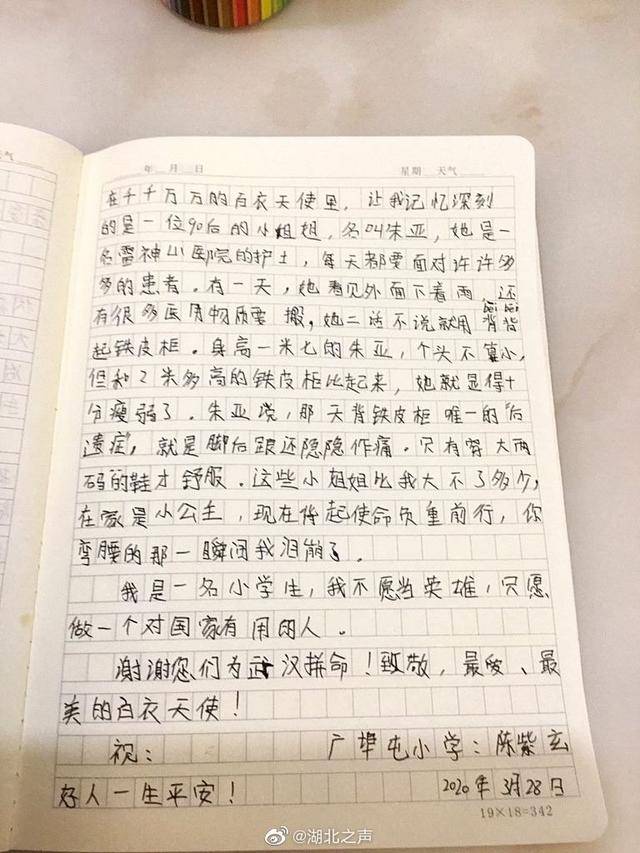 年 月 日 星期 天气
在千千万万的白衣天使里，让我记忆深刻
的是一位90后的小姐姐，名叫朱亚，她是一
名雷神山医院的护士，每天都要面对许许多
多的患者．有一天，她看见外面下着雨，还
有很多医用物质要搬，她二话不说就用背背
起铁皮柜．身高一米七的朱亚，个头不算小，
但和2米多高的铁皮柜比起来，她就显得十
分瘦弱了．朱亚说，那天背铁皮柜唯一的"后
遗症"，就是脚后跟还隐隐作痛．只有穿大两
码的鞋才舒服．这些小姐姐比我大不了多少，
在家是小公主，现在传起使命负重前行，你
弯腰的那一瞬间我泪崩了．
我是一名小学生，我不愿当英雄，只愿
做一个对国家有用的人．
谢谢您们为武汉拼命！致敬，最爱、最
美的白衣天使！
祝： 广埠屯小学：陈紫玄
好人一生平安！ 2020年3月28日
19×18=342
@湖北之声